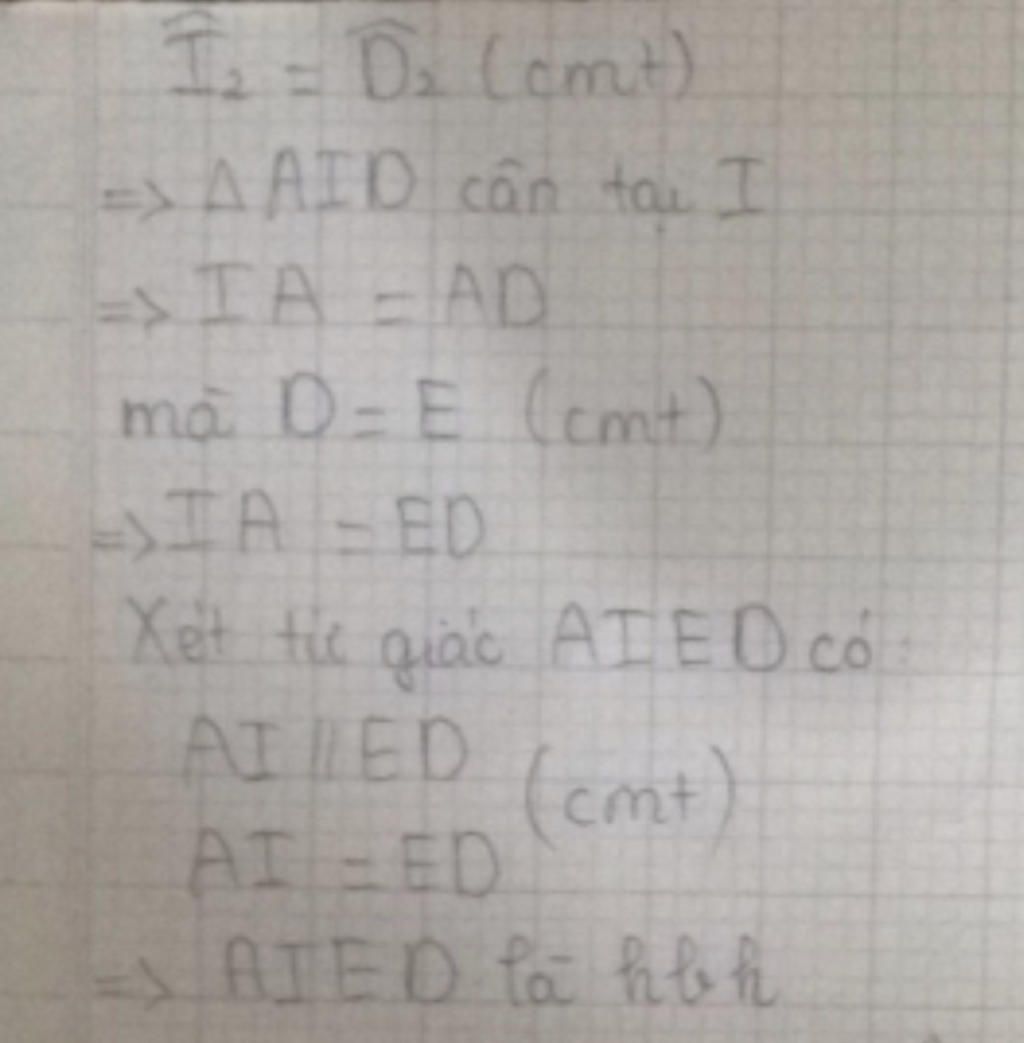 Î₂ = D̂₂ (cmt)
=> Δ AID cân tại I
=> IA = AD
mà D = E (cmt)
=> IA = ED
Xét tứ giác AIED có:
AI // ED
(cmt)
AI = ED
=> AIED là hbh